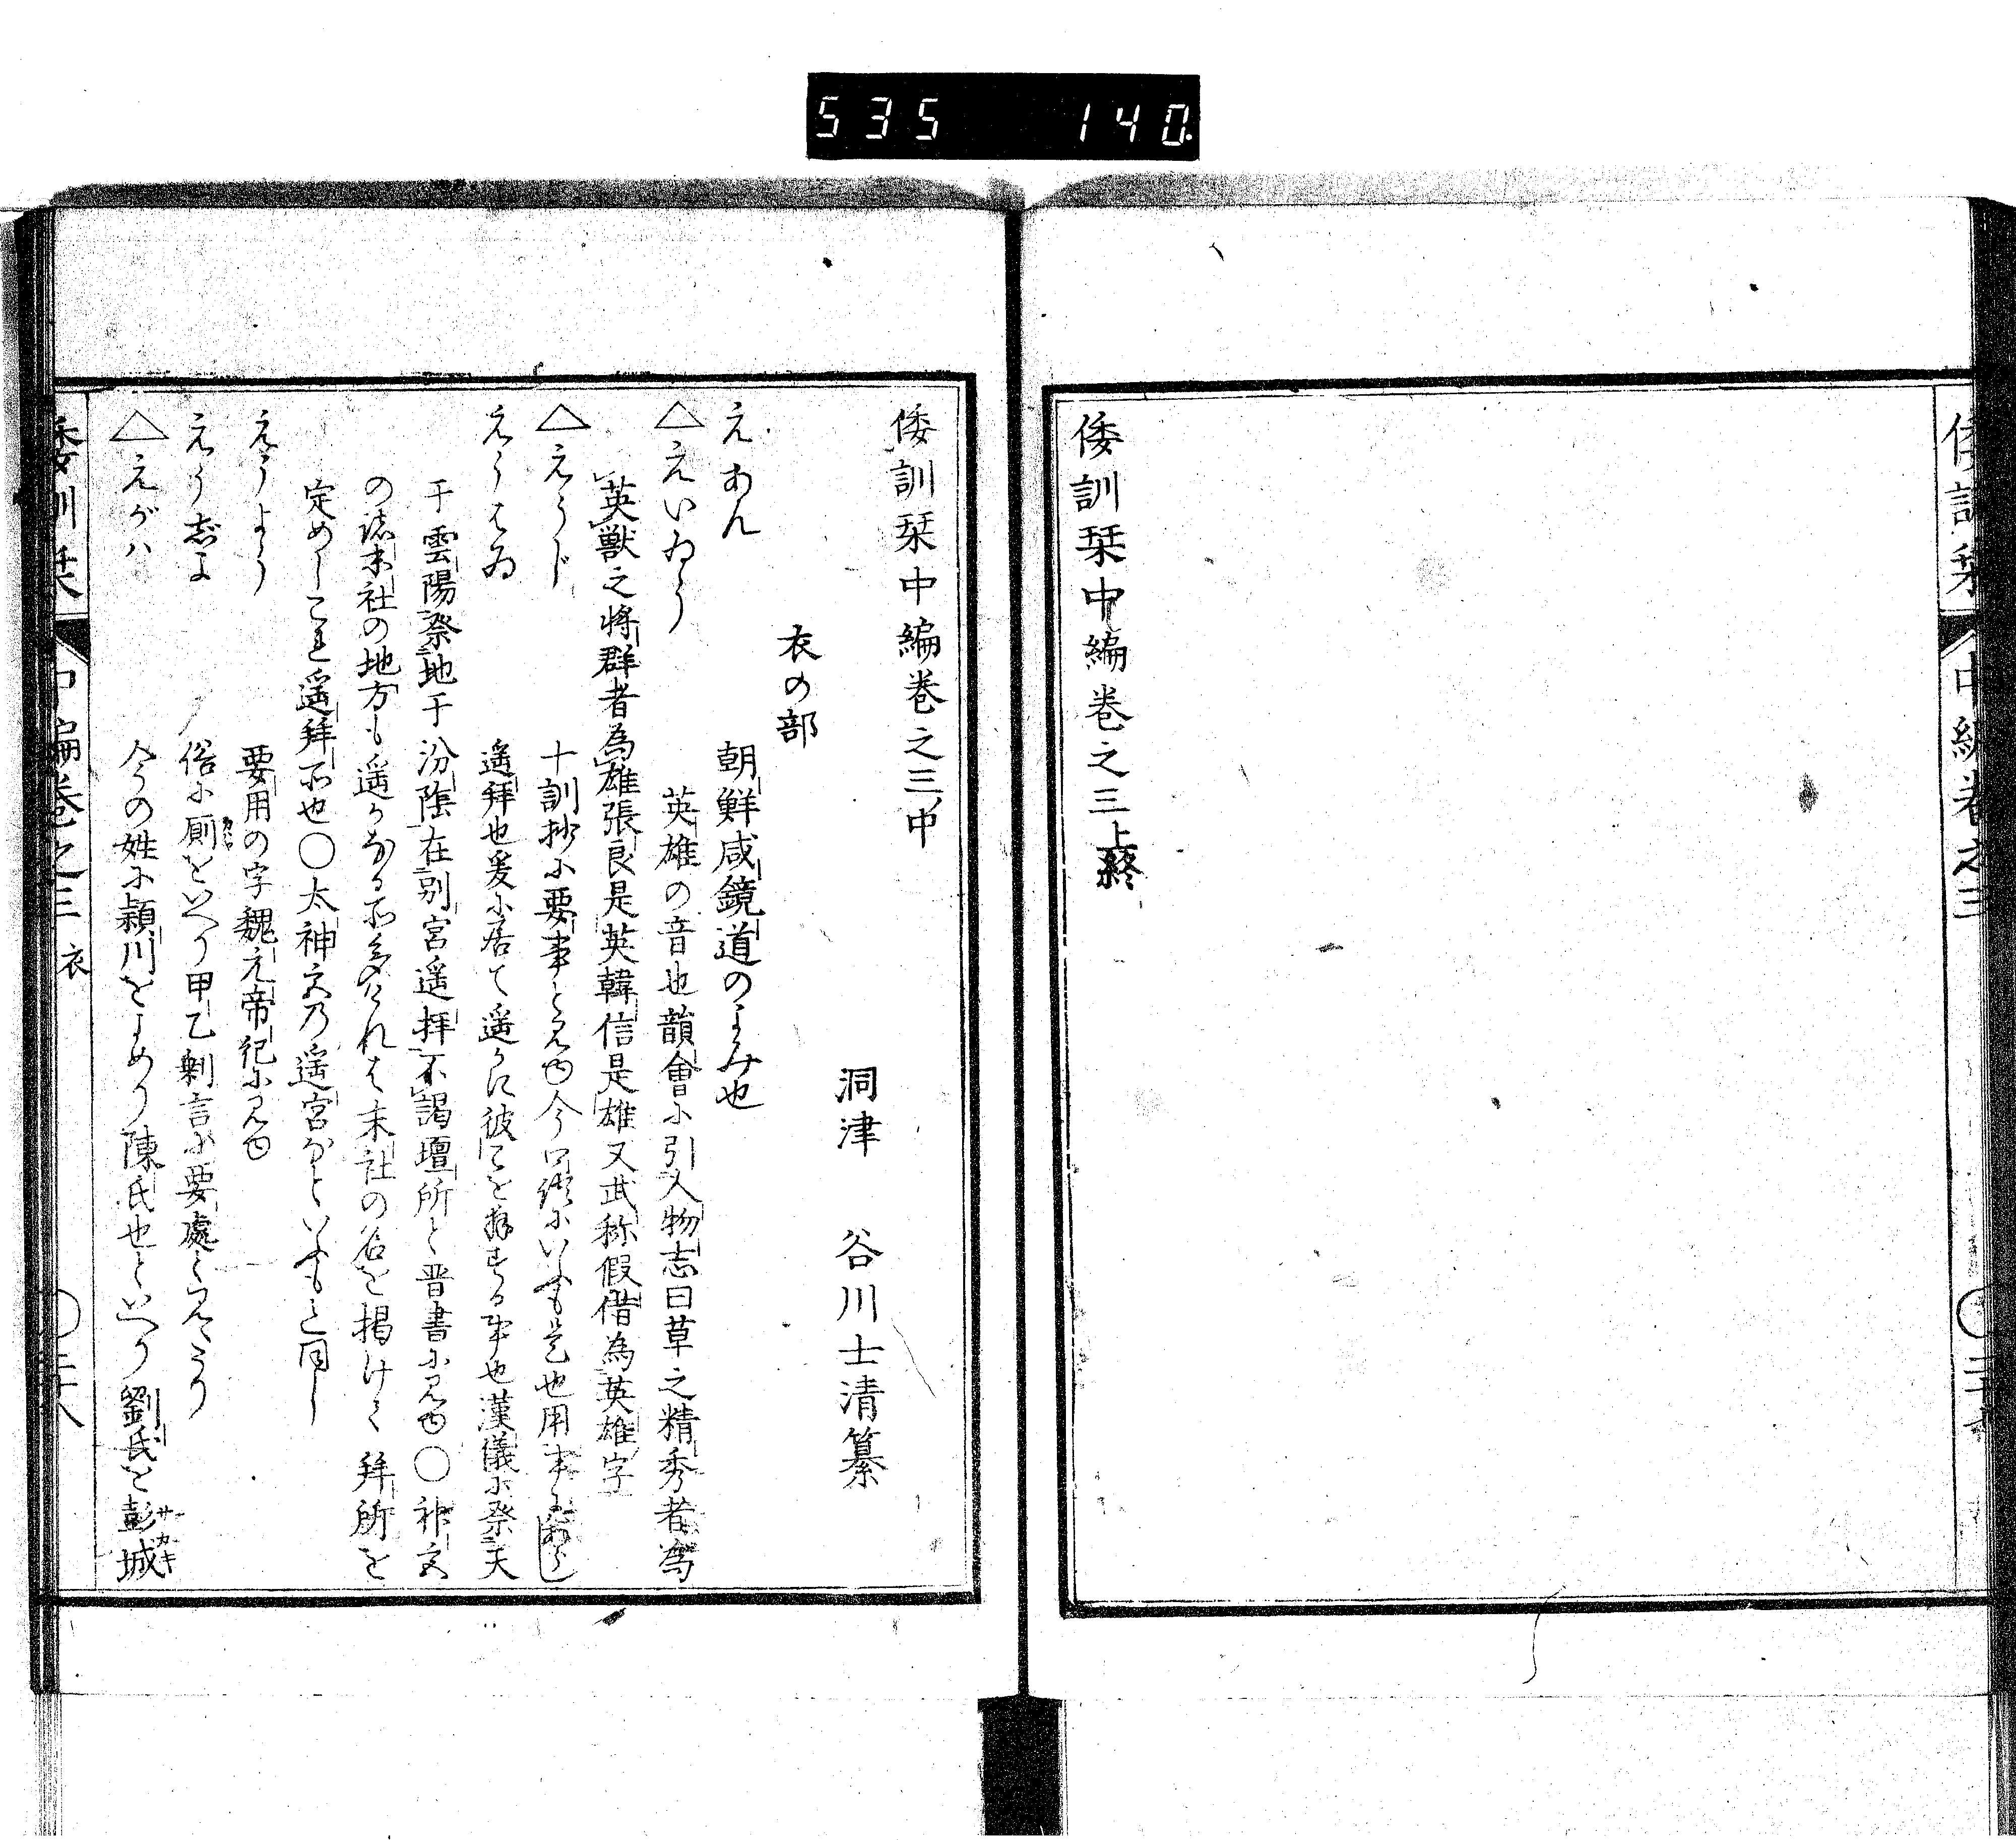 535 140
倭訓栞 中編卷之三
倭訓栞中編卷之三上終
倭訓栞中編卷之三中
洞津 谷川士清纂
衣の部
えあん 朝鮮咸鏡道のよみ也
△えいゐう 英雄の音也韻會に引人物志曰草之精秀者為
英獣之將群者為雄張良是英韓信是雄又武称假借為英雄字
△えうじ 十訓抄に要事と見ゆ今口語にいふも是也用事に
えうはゐ 遥拜也爰に居て遥かに彼こを拜する事也漢儀に祭天
于雲陽祭地于汾陰在別宮遥拝不謁壇所と晋書に見ゆ○神文
の諸末社の地方も遥かなる所多けれは末社の名を掲けて拜所を
定めしこれ遥拜所也○太神宮乃遥宮なといふも同し
えうよう 要用の字魏元帝紀に見ゆ
えうぢよ 俗に厠をいへり甲乙剰言に要處と見えたり
△えがハ 今の姓に潁川をよめり陳氏也といへり劉氏を彭城サカキ
倭訓栞 中編卷之三 衣 ○二十八